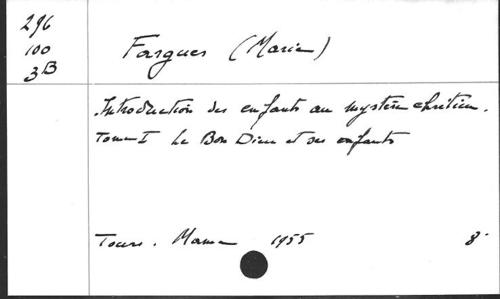 296
100
3B
Fargues (Marie)
Introduction des enfants au mystère chrétien.
Tome I Le Bon Dieu et ses enfants
Tours. Mame 1955 8°